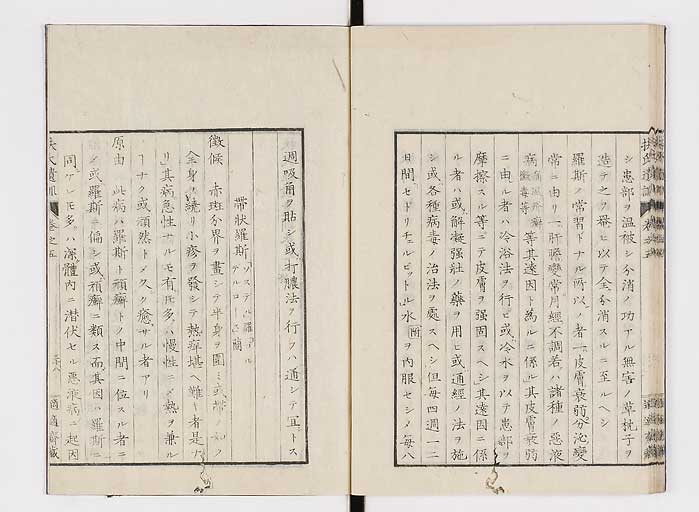 シ患部ヲ温被シ分消ノ功アル無害ノ草枕子ヲ
造テ之ヲ罨ヒ以テ全分消スルニ至ルヘシ
羅斯ノ常習トナル所以ノ者ハ皮膚衰弱分泌變
常ニ由リ肝臓變常月經不調若クハ諸種ノ惡液
病
黴毒等
等其遠因ト為ルニ係ル其皮膚衰弱
ニ由ル者ハ冷浴法ヲ行ヒ或冷水ヲ以テ患部ヲ
摩擦スル等ニテ皮膚ヲ強固スヘシ其遠因ニ係
ル者ハ或ハ解凝強壮ノ藥ヲ用ヒ或通經ノ法ヲ施
シ或各種病毒ノ治法ヲ處スヘシ但毎四週一二
日間セドリチェルビットル水附ヲ内服セシメ毎八
週吸角ヲ貼シ或打膿法ヲ行フハ通シテ宜トス
帶状羅斯
徴候 赤斑分界ヲ畫シテ半身ヲ圍ミ或帶ノ如ク
全身ヲ繞リ小疹ヲ發シテ熱痒堪ヘ難キ者是ナ
リ其病急性ナルモ有レ𪜈多クハ慢性ニメ熱ヲ兼ル
ーナク或頑然トメ久ク癒サル者アリ
原由 此病ハ羅斯ト頑癬トノ中間ニ位スル者ニ
シテ或羅斯ニ偏シ或頑癬ニ類ス而其因ハ羅斯ニ
同ケレ𪜈多クハ深ク體内ニ潜伏セル惡液病ニ起因
扶氏遺訓
卷之五
適適齋藏